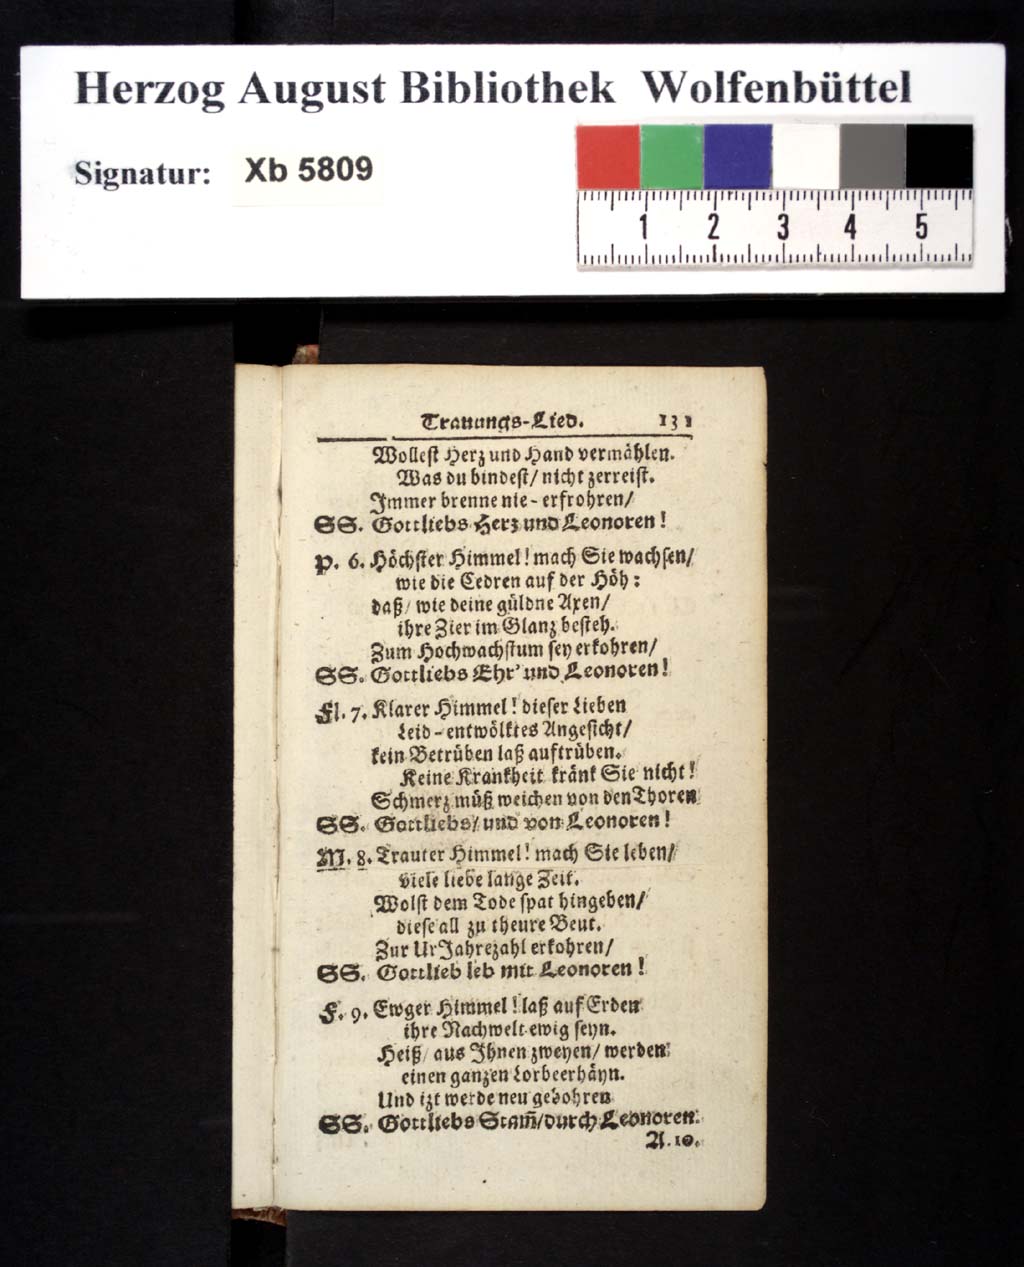 Herzog August Bibliothek Wolfenbüttel
Signatur: Xb 5809
1 2 3 4 5
Trauungs-Lied. 131
Wollest Herz und Hand vermählen.
Was du bindest/ nicht zerreist.
Immer brenne nie-erfrohren/
SS. Gottliebs Herz und Leonoren!
P. 6. Höchster Himmel! mach Sie wachsen/
wie die Cedren auf der Höh:
daß/ wie deine güldne Axen/
ihre Zier im Glanz besteh.
Zum Hochwachstum sey erkohren/
SS. Gottliebs Ehr' und Leonoren!
Fl. 7. Klarer Himmel! dieser Lieben
Leid-entwölktes Angesicht/
kein Betrüben laß auftrüben.
Keine Krankheit kränk Sie nicht!
Schmerz müß weichen von den Thoren
SS. Gottliebs/ und von Leonoren!
M. 8. Trauter Himmel! mach Sie leben/
viele liebe lange Zeit.
Wolst dem Tode spat hingeben/
diese all zu theure Beut.
Zur UrJahrezahl erkohren/
SS. Gottlieb leb mit Leonoren!
F. 9. Ewger Himmel! laß auf Erden
ihre Nachwelt ewig seyn.
Heiß/ aus Ihnen zweyen/ werden
einen ganzen Lorbeerhäyn.
Und izt werde neu gebohren
SS. Gottliebs Stam̃/ durch Leonoren.
A. 10.